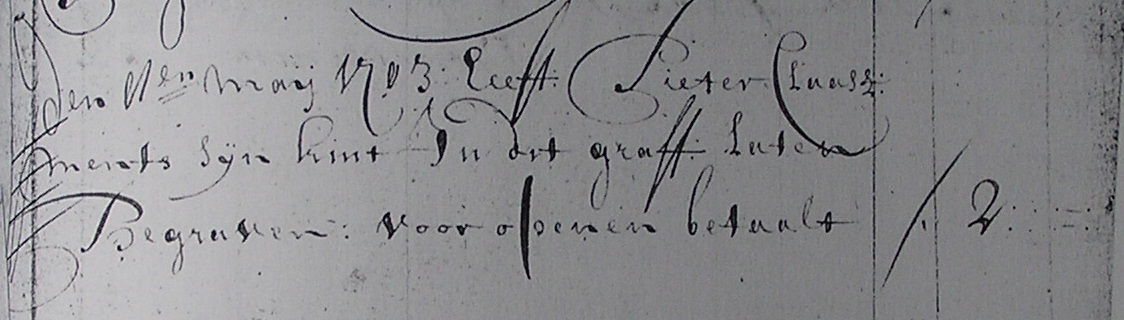 den 11en maij 1703: heeft Pieter Claasz:
ments sijn kint In dit graff: Laten
Begraven: voor openen betaalt / 2: : –: